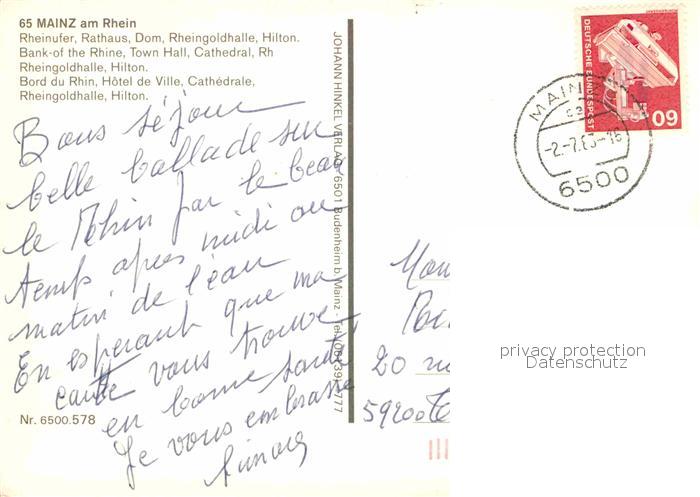 65 MAINZ am Rhein
Rheinufer, Rathaus, Dom, Rheingoldhalle, Hilton.
Bank-of the Rhine, Town Hall, Cathedral, Rh
Rheingoldhalle, Hilton.
Bord du Rhin, Hôtel de Ville, Cathédrale,
Rheingoldhalle, Hilton.
Bons séjour
belle ballade sur
le Rhin par le beau
temps apres midi ou
matin de l'eau
En esperant que ma
carte vous trouve
en bonne santé
Je vous embrasse
Nr. 6500.578
JOHANN HINKEL VERLAG 6501 Budenheim b. Mainz
DEUTSCHE BUNDESPOST
60
MAINZ
-2.-7.83-16
6500
20
59200
privacy protection
Datenschutz